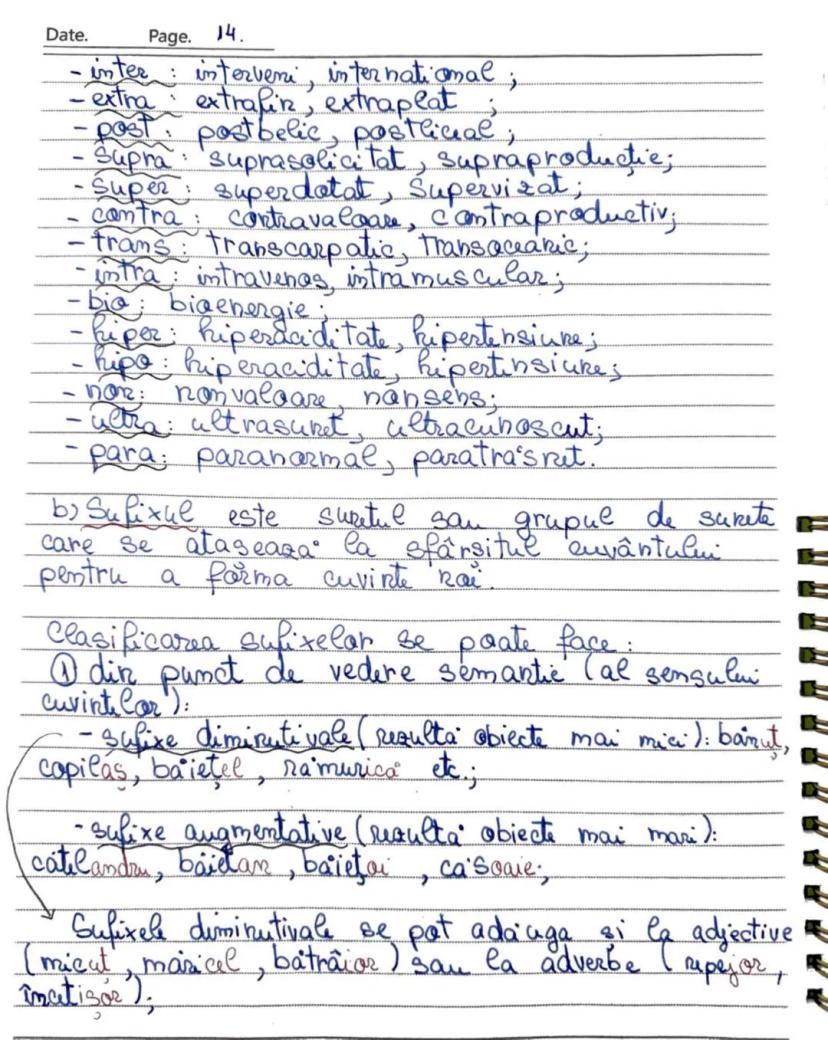 Date. Page. 14.
- inter : interveni, international ;
- extra : extrafin, extraplat ;
- post : postbelic, postliceal ;
- supra : suprasolicitat, supraproducție;
- super : superdotat, Supervizat ;
- contra : contravaloare, contraproductiv;
- trans : transcarpatic, transoceanic;
- intra : intravenos, intramuscular ;
- bio : bioenergie ;
- hiper : hiperaciditate, hipertensiune ;
- hipo : hiperaciditate, hipertensiune ;
- non : nonvaloare, nonsens ;
- ultra : ultrasunet, ultracunoscut;
- para : paranormal, paratrăsnet.
b) Sufixul este sunetul sau grupul de sunete
care se atasează la sfârsitul cuvântului
pentru a forma cuvinte noi.
Clasificarea sufixelor se poate face :
① din punct de vedere semantic (al sensului
cuvintelor):
- sufixe diminutivale (rezultă obiecte mai mici): bănuț,
copilaș, băiețel, rămurică etc.;
- sufixe augmentative (rezultă obiecte mai mari):
cățelandru, băietan, băiețoi, căsoaie;
Sufixele diminutivale se pot adăuga și la adjective
(micuț, măricel, bătrâior) sau la adverbe (repejor,
încetișor);